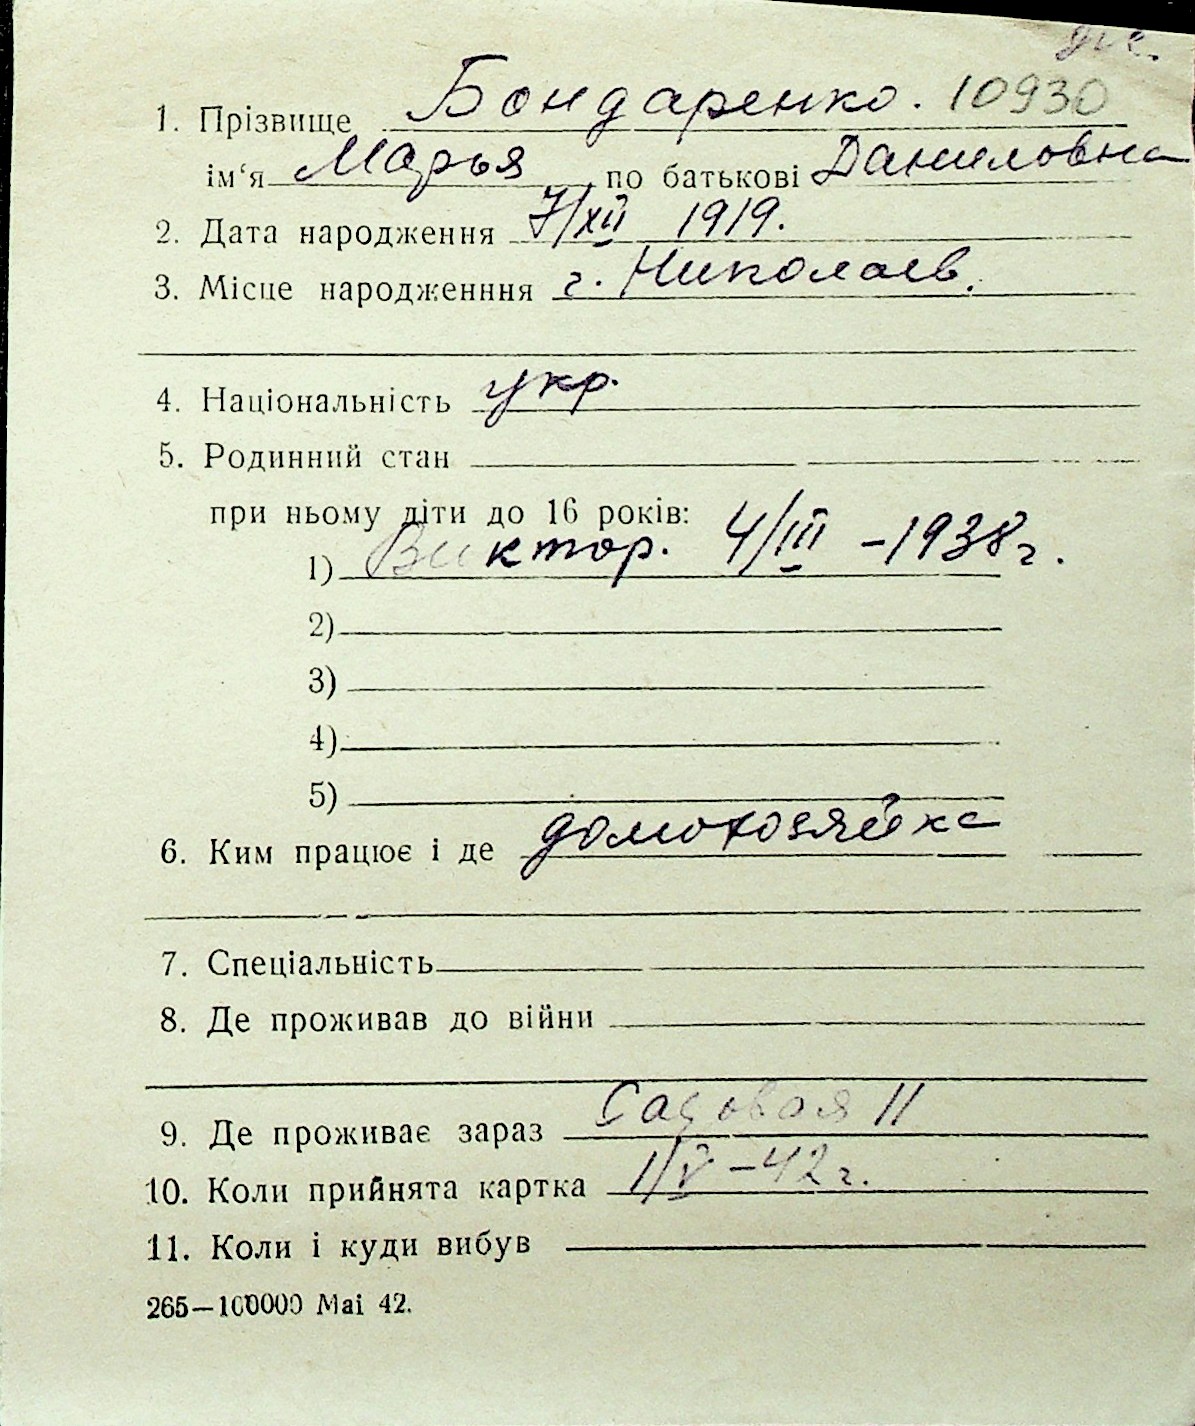 1. Прізвище Бондаренко. 10930
ім‘я Марья по батькові Даниловна
2. Дата народження 7/XII 1919.
3. Місце народженння г. Николаев.
4. Національність укр.
5. Родинний стан
при ньому діти до 16 років:
1) Виктор. 4/III - 1938 г.
2)
3)
4)
5)
6. Ким працює і де домохозяйка
7. Спеціальність
8. Де проживав до війни
9. Де проживає зараз Садовая 11
10. Коли прийнята картка 1/V - 42 г.
11. Коли і куди вибув
265—100000 Mai 42.